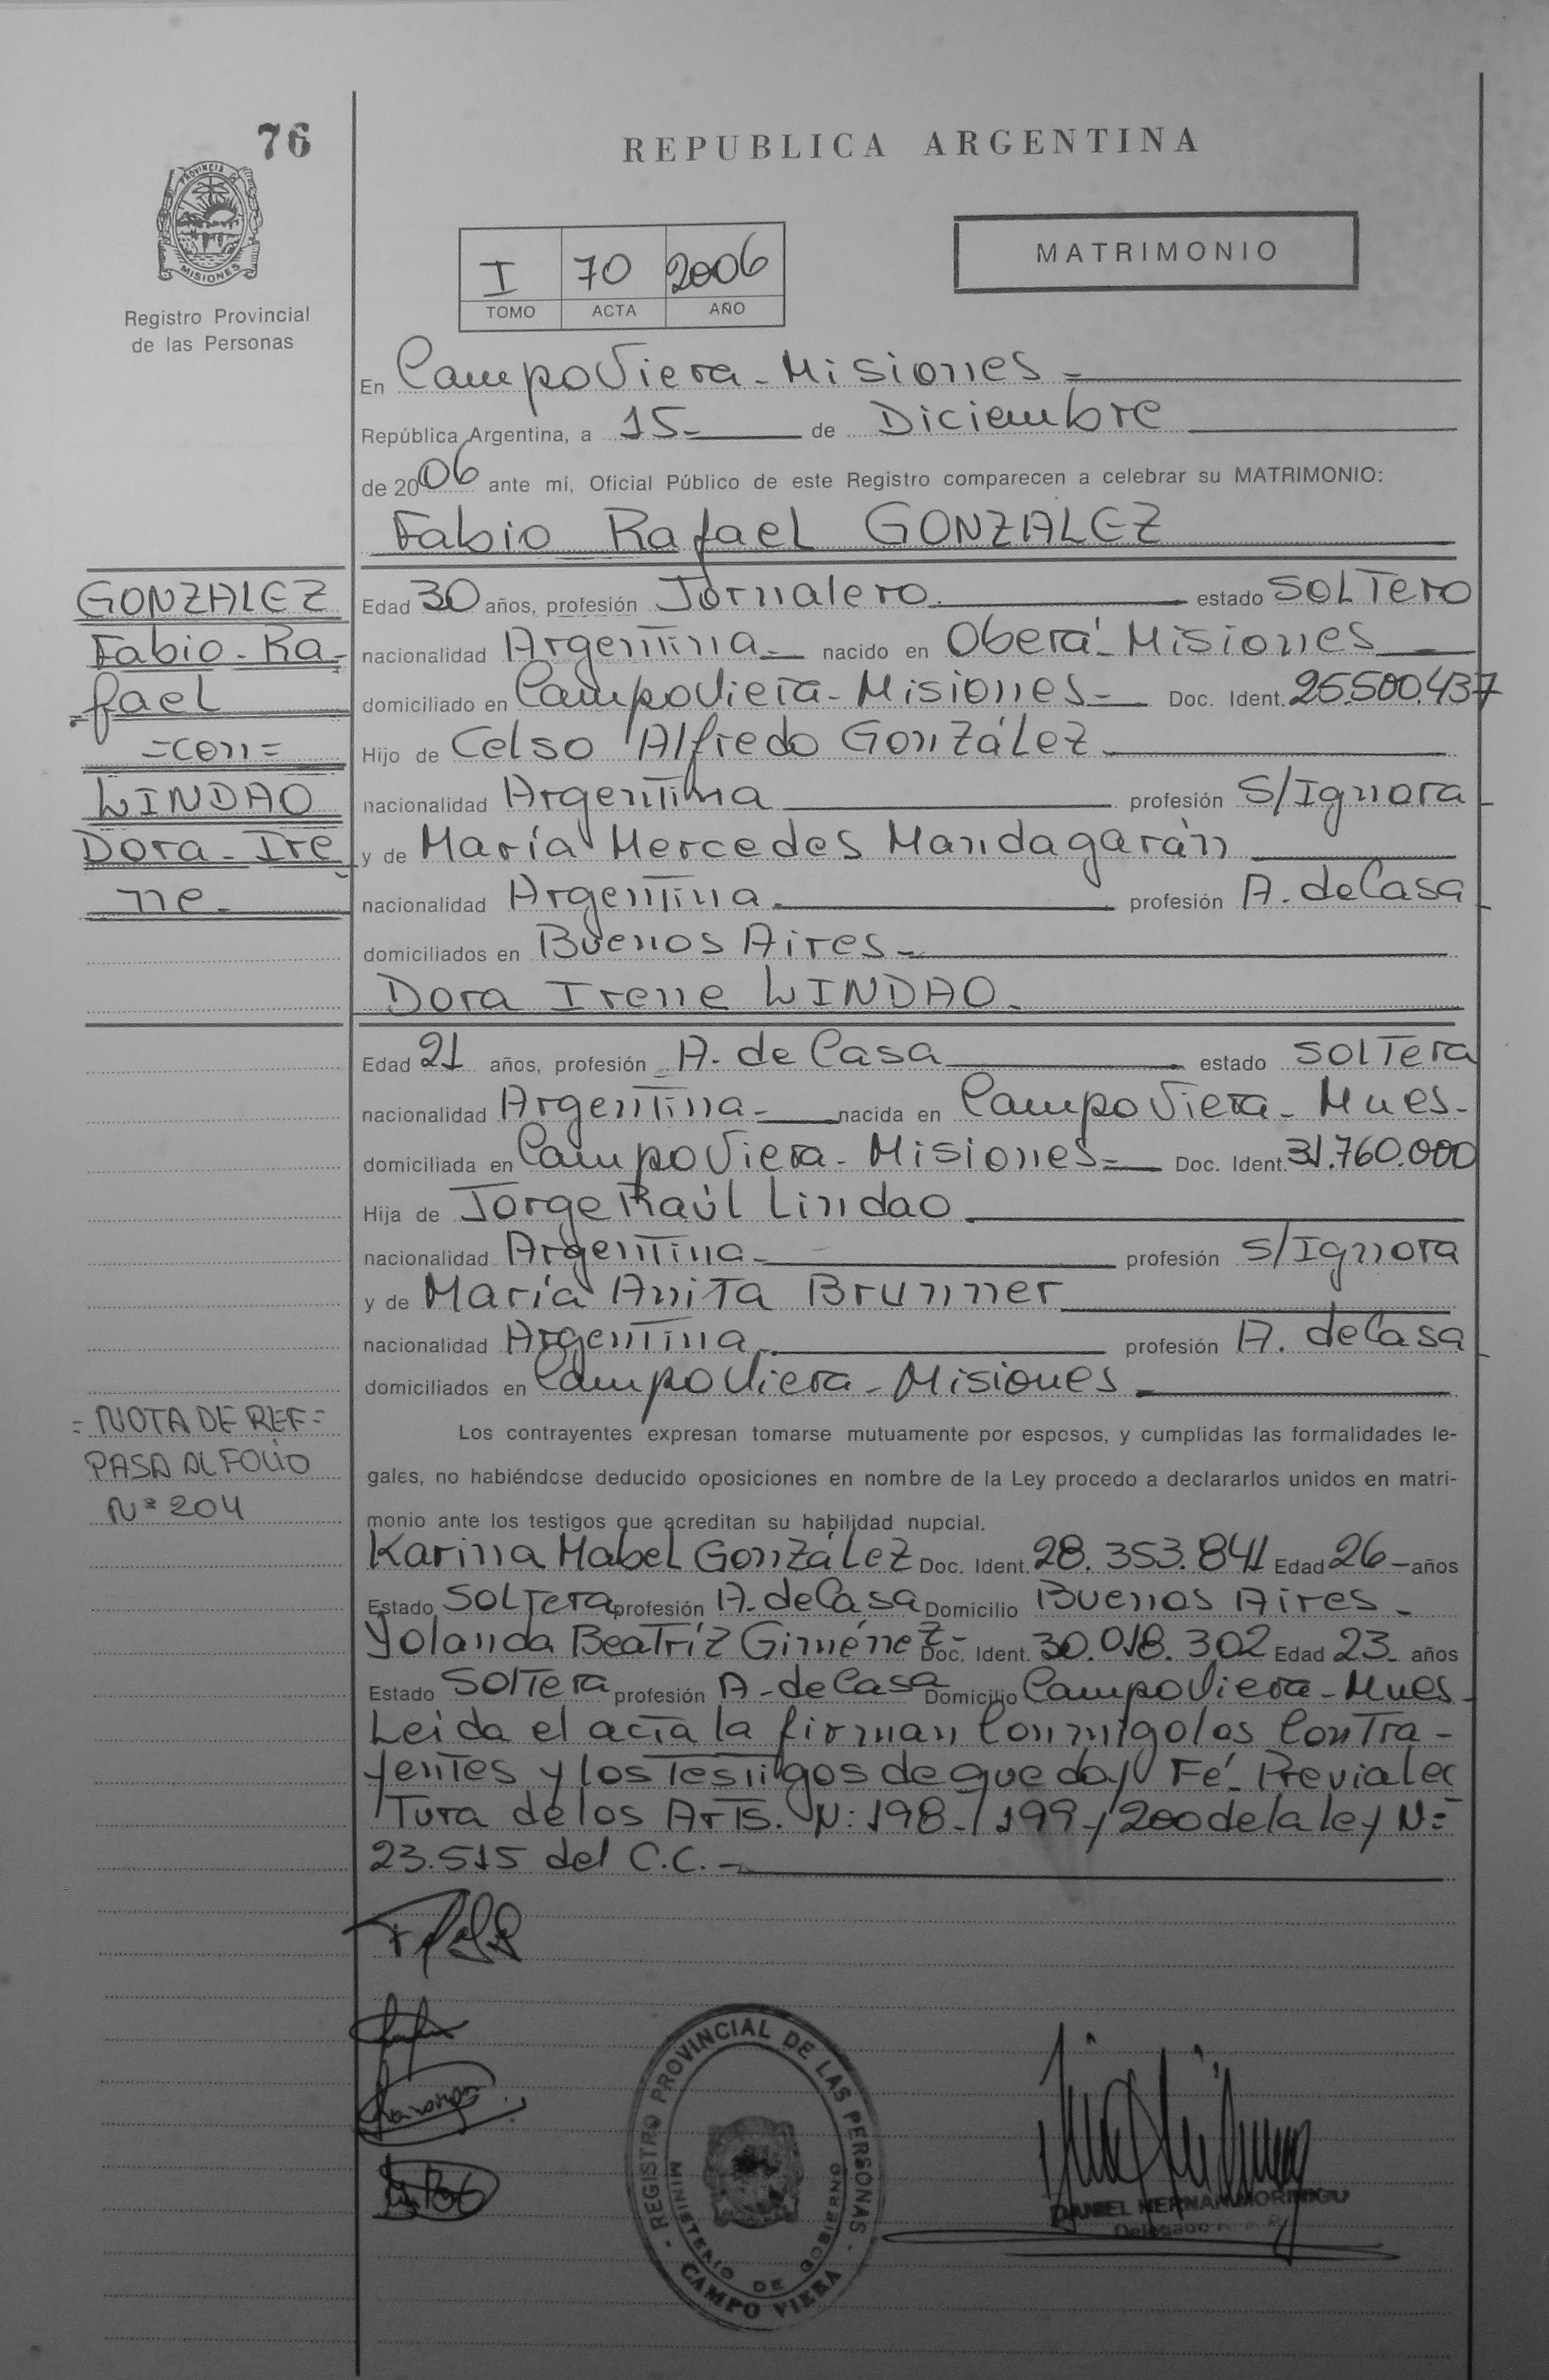 76
REPUBLICA ARGENTINA
PROVINCIA DE
MISIONES
Registro Provincial
de las Personas
I 70 2006
TOMO ACTA AÑO
MATRIMONIO
En Campo Viera - Misiones =
República Argentina, a 15- de Diciembre
de 2006 ante mí, Oficial Público de este Registro comparecen a celebrar su MATRIMONIO:
Fabio Rafael GONZALEZ
GONZALEZ
Fabio - Ra-
fael
=con=
LINDAO
Dora - Ire
ne -
Edad 30 años, profesión Jornalero. estado SOLTero
nacionalidad Argentina - nacido en Oberá - Misiones
domiciliado en Campo Viera - Misiones - Doc. Ident. 25.500.437
Hijo de Celso Alfredo González
nacionalidad Argentina profesión S/Ignora
y de María Mercedes Mandagarán
nacionalidad Argentina - profesión A. de Casa
domiciliados en Buenos Aires -
Dora Irene LINDAO -
Edad 21 años, profesión A. de Casa estado SOLTera
nacionalidad Argentina - nacida en Campo Viera - Mnes-
domiciliada en Campo Viera - Misiones - Doc. Ident. 31.760.000
Hija de Jorge Raúl Lindao
nacionalidad Argentina - profesión S/Ignora
y de María Anita Brunner
nacionalidad Argentina - profesión A. de Casa
domiciliados en Campo Viera - Misiones -
= NOTA DE REF =
PASA AL FOLIO
Nº 204
Los contrayentes expresan tomarse mutuamente por esposos, y cumplidas las formalidades le-
gales, no habiéndose deducido oposiciones en nombre de la Ley procedo a declararlos unidos en matri-
monio ante los testigos que acreditan su habilidad nupcial.
Karina Mabel González Doc. Ident. 28.353.841 Edad 26 - años
Estado SOLTera profesión A. de Casa Domicilio Buenos Aires -
Yolanda Beatríz Giménez - Doc. Ident. 30.018.302 Edad 23 - años
Estado SOLTera profesión A - de Casa Domicilio Campo Viera - Mnes -
Leida el acta la firman Conmigo los Contra -
yentes y los Testigos de que doy Fé - Previa lec
Tura de los Arts. N: 198 - 199 y 200 de la ley N:
23.515 del C.C. -
REGISTRO PROVINCIAL DE LAS PERSONAS
MINISTERIO DE GOBIERNO
CAMPO VIERA
DANIEL HERNAN MORINIGO
Delegado